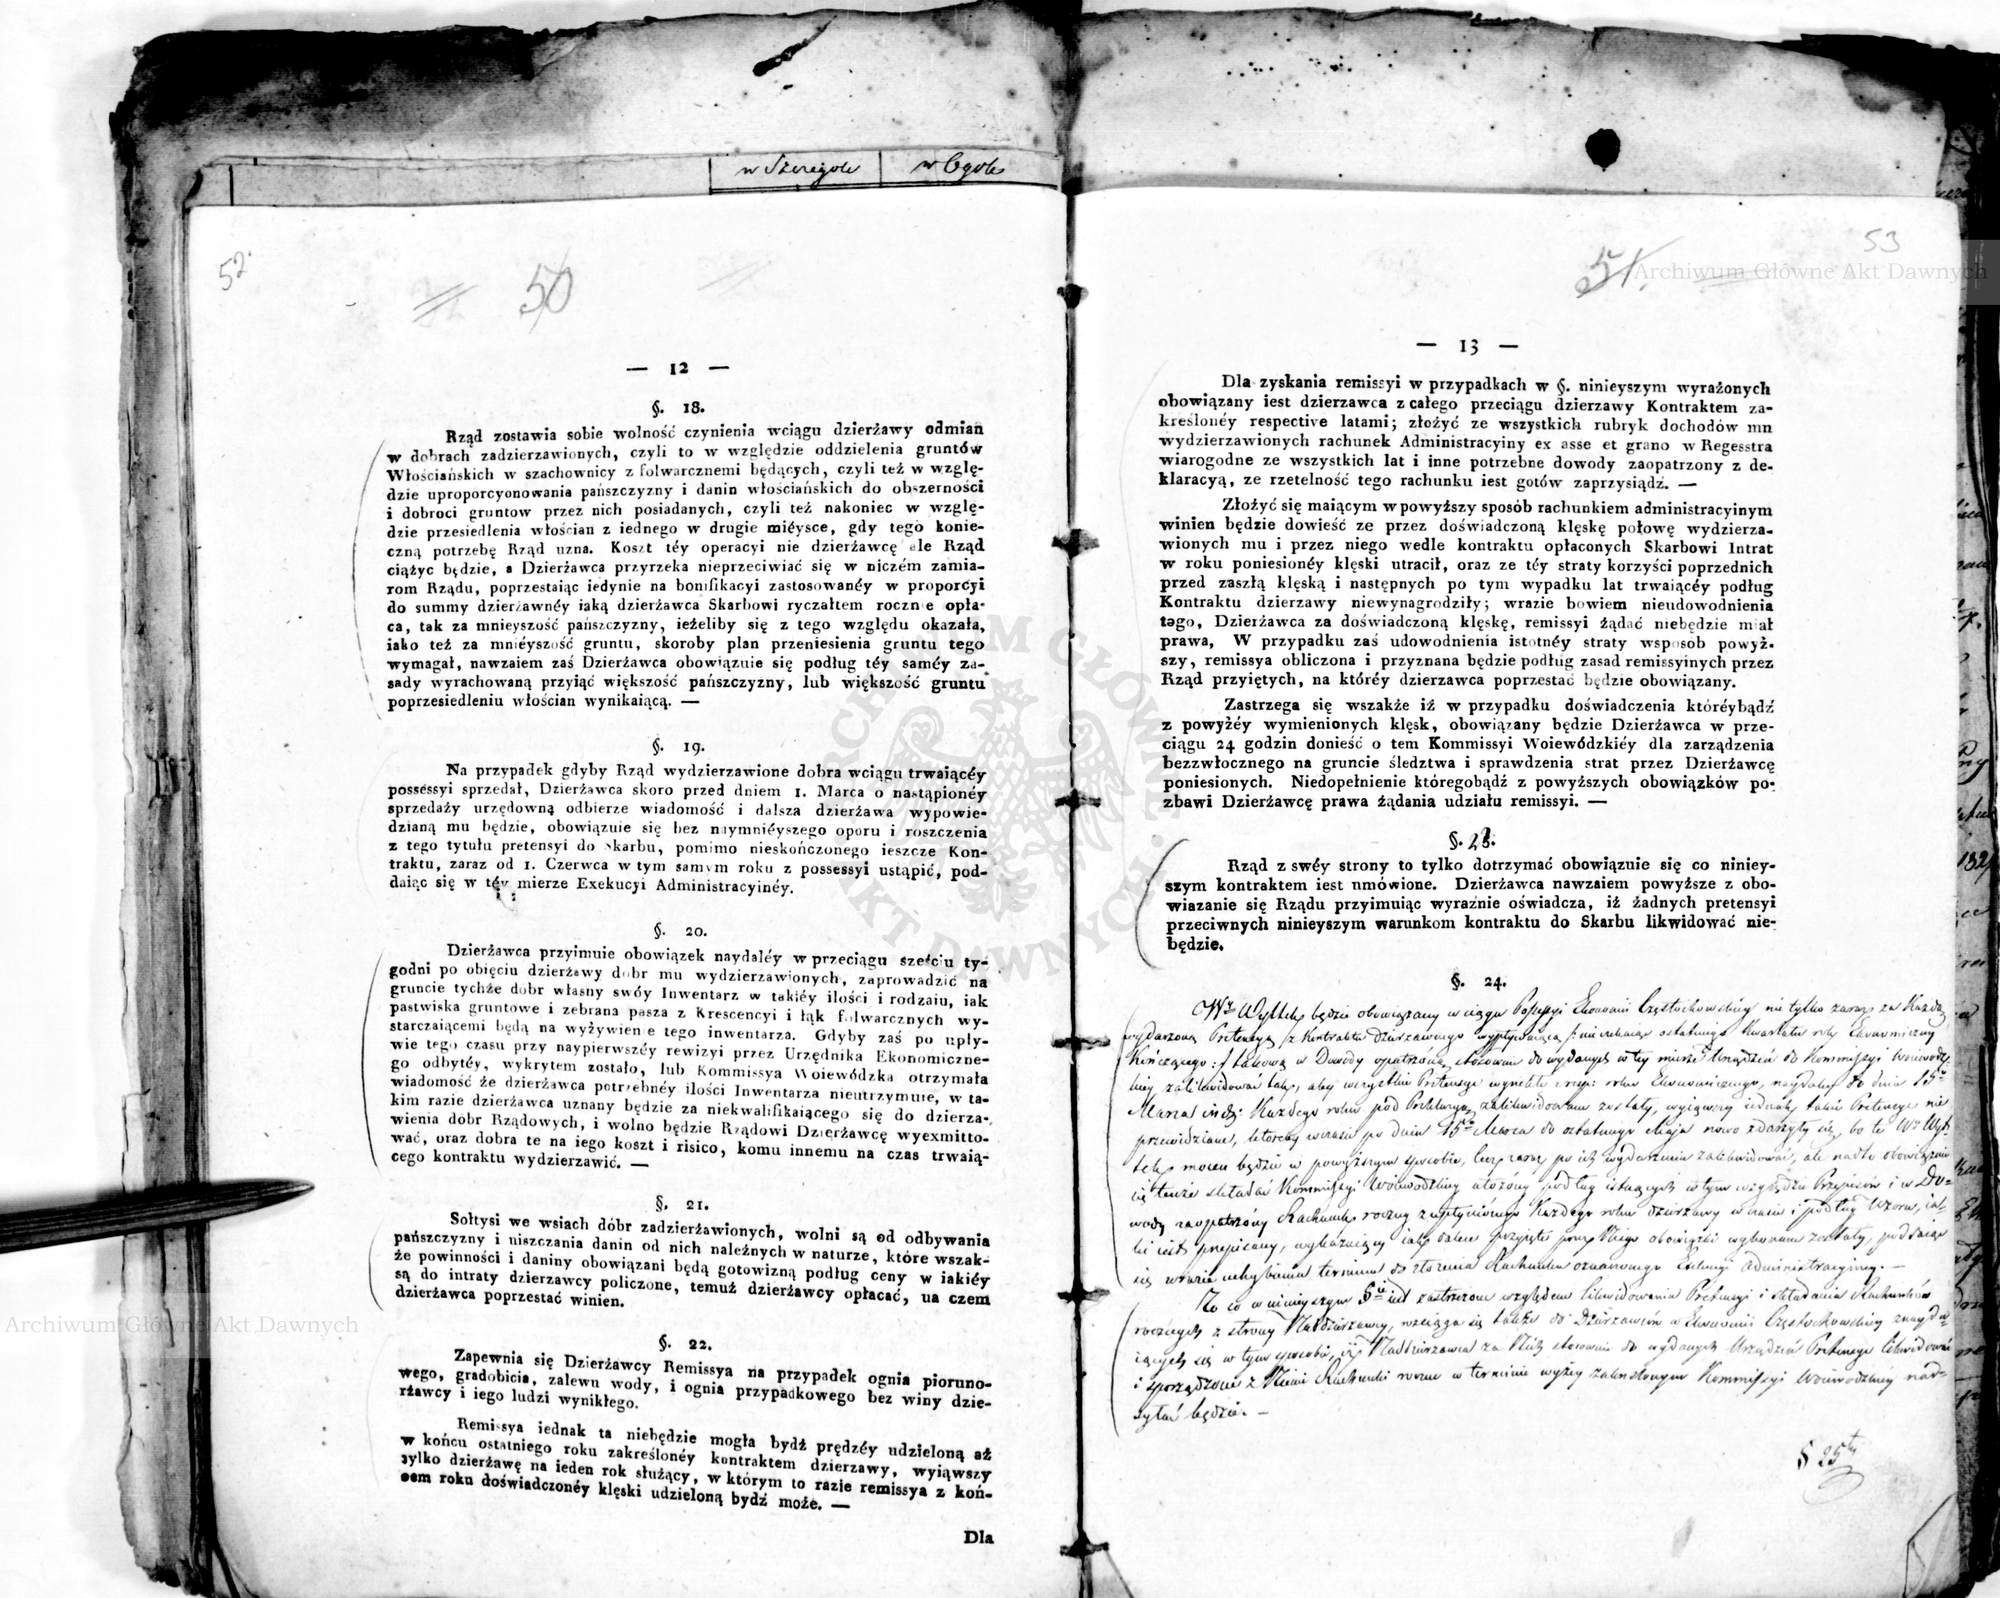 w Szczegole w Ogole
52.
50
— 12 —
§. 18.
Rząd zostawia sobie wolność czynienia wciągu dzierżawy odmian
w dobrach zadzierzawionych, czyli to w względzie oddzielenia gruntów
Włościańskich w szachownicy z folwarcznemi będących, czyli też w wzglę-
dzie uproporcyonowania pańszczyzny i danin włościańskich do obszerności
i dobroci gruntow przez nich posiadanych, czyli też nakoniec w wzglę-
dzie przesiedlenia włościan z iednego w drugie miéysce, gdy tego konie-
czną potrzebę Rząd uzna. Koszt téy operacyi nie dzierżawcę ale Rząd
ciążyc będzie, a Dzierżawca przyrzeka nieprzeciwiać się w niczém zamia-
rom Rządu, poprzestaiąc iedynie na bonifikacyi zastosowanéy w proporcyi
do summy dzierżawnéy iaką dzierżawca Skarbowi ryczałtem rocznie opła-
ca, tak za mnieyszość pańszczyzny, ieżeliby się z tego względu okazała,
iako też za mniéyszość gruntu, skoroby plan przeniesienia gruntu tego
wymagał, nawzaiem zaś Dzierżawca obowiązuie się podług téy saméy za-
sady wyrachowaną przyiąć większość pańszczyzny, lub większość gruntu
poprzesiedleniu włościan wynikaiącą. —
§. 19.
Na przypadek gdyby Rząd wydzierzawione dobra wciągu trwaiącéy
possessyi sprzedał, Dzierżawca skoro przed dniem 1. Marca o nastąpionéy
sprzedaży urzędowną odbierze wiadomość i dalsza dzierżawa wypowie-
dzianą mu będzie, obowiązuie się bez naymniéyszego oporu i roszczenia
z tego tytułu pretensyi do Skarbu, pomimo nieskończonego ieszcze Kon-
traktu, zaraz od 1. Czerwca w tym samym roku z possessyi ustąpić, pod-
daiąc się w téy mierze Exekucyi Administracyinéy.
§. 20.
Dzierżawca przyimuie obowiązek naydaléy w przeciągu sześciu ty-
godni po obięciu dzierżawy dobr mu wydzierzawionych, zaprowadzić na
gruncie tychże dobr własny swóy Inwentarz w takiéy ilości i rodzaiu, iak
pastwiska gruntowe i zebrana pasza z Krescencyi i łąk folwarcznych wy-
starczaiącemi będą na wyżywienie tego inwentarza. Gdyby zaś po upły-
wie tego czasu przy naypierwszéy rewizyi przez Urzędnika Ekonomiczne-
go odbytéy, wykrytem zostało, lub Kommissya Woiewódzka otrzymała
wiadomość że dzierżawca potrzebnéy ilości Inwentarza nieutrzymuie, w ta-
kim razie dzierżawca uznany będzie za niekwalifikaiącego się do dzierza-
wienia dóbr Rządowych, i wolno będzie Rządowi Dzierżawcę wyexmitto-
wać, oraz dobra te na iego koszt i risico, komu innemu na czas trwaią-
cego kontraktu wydzierzawić. —
§. 21.
Sołtysi we wsiach dóbr zadzierżawionych, wolni są od odbywania
pańszczyzny i uiszczania danin od nich należnych w naturze, które wszak-
że powinności i daniny obowiązani będą gotowizną podług ceny w iakiéy
są do intraty dzierzawcy policzone, temuż dzierżawcy opłacać, na czem
dzierżawca poprzestać winien.
§. 22.
Zapewnia się Dzierżawcy Remissya na przypadek ognia pioruno-
wego, gradobicia, zalewu wody, i ognia przypadkowego bez winy dzie-
rżawcy i iego ludzi wynikłego.
Remissya iednak ta niebędzie mogła bydź prędzéy udzieloną aż
w końcu ostatniego roku zakreślonéy kontraktem dzierzawy, wyiąwszy
tylko dzierżawę na ieden rok służący, w którym to razie remissya z koń-
cem roku doświadczonéy klęski udzieloną bydź może. —
Dla
53
51.
— 13 —
Dla zyskania remissyi w przypadkach w §. ninieyszym wyrażonych
obowiązany iest dzierzawca z całego przeciągu dzierzawy Kontraktem za-
kreślonéy respective latami; złożyć ze wszystkich rubryk dochodów mu
wydzierzawionych rachunek Administracyiny ex asse et grano w Regesstra
wiarogodne ze wszystkich lat i inne potrzebne dowody zaopatrzony z de-
klaracyą, ze rzetelność tego rachunku iest gotów zaprzysiądź. —
Złożyć się maiącym w powyższy sposób rachunkiem administracyinym
winien będzie dowieść ze przez doświadczoną klęskę połowę wydzierza-
wionych mu i przez niego wedle kontraktu opłaconych Skarbowi Intrat
w roku poniesionéy klęski utracił, oraz ze téy straty korzyści poprzednich
przed zaszłą klęską i następnych po tym wypadku lat trwaiącéy podług
Kontraktu dzierzawy niewynagrodziły; wrazie bowiem nieudowodnienia
tego, Dzierżawca za doświadczoną klęskę, remissyi żądać niebędzie miał
prawa, W przypadku zaś udowodnienia istotnéy straty wsposob powyż-
szy, remissya obliczona i przyznana będzie podług zasad remissyinych przez
Rząd przyiętych, na któréy dzierzawca poprzestać będzie obowiązany.
Zastrzega się wszakże iż w przypadku doświadczenia któréybądź
z powyżéy wymienionych klęsk, obowiązany będzie Dzierżawca w prze-
ciągu 24 godzin donieść o tem Kommissyi Woiewódzkiéy dla zarządzenia
bezzwłocznego na gruncie śledztwa i sprawdzenia strat przez Dzierżawcę
poniesionych. Niedopełnienie któregobądź z powyższych obowiązków po-
zbawi Dzierżawcę prawa żądania udziału remissyi. —
§. 23.
Rząd z swéy strony to tylko dotrzymać obowiązuie się co niniey-
szym kontraktem iest umówione. Dzierżawca nawzaiem powyższe z obo-
wiazanie się Rządu przyimuiąc wyraźnie oświadcza, iż żadnych pretensyi
przeciwnych ninieyszym warunkom kontraktu do Skarbu likwidować nie-
będzie.
§. 24.
będzie obowiązany w ciągu Possessyi Ekonomii Częstochowskiey nie tylko zaraz za Każdą
wydarzoną Pretensyą z Kontraktu Dzierzawnego
Kończącego takową w Dowody opatrzoną stosownie do wydanych w tey mierze Urządzeń do Kommissyi Woiewodz-
kiey zalikwidować roku Ekonomicznego, naydaley do dnia 15
Marca Każdego roku pod Prekluzyą zalikwidowane zostały, wyiąwszy iednak takie Pretensye nie
przewidziane, po dniu 15 Marca do ostatniego Maja
mocen będzie w powyższym sposobie, zaraz po ich wydarzeniu zalikwidować, ale nadto obowiązuie
się tenże składać Kommissyi Woiewodzkiey
się wrazie uchybienia terminu do złożenia Rachunku Exekucyi Administracyiney. —
To co w ninieyszym §ie iest zastrzeżone względem likwidowania Pretensyi i składania Rachunków
rocznych z strony Naddzierzawcy, rozciąga się także do Dzierzawców w Ekonomii Częstochowskiey znaydu-
iących się w tym sposobie, iż Naddzierzawca za Nich stosownie do wydanych Urządzeń Pretensye likwidować
i sporządzone z Niemi Rachunki roczne w terminie wyżey Kommissyi Woiewodzkiey nad-
syłać będzie. —
§ 25ty
Archiwum Główne Akt Dawnych
Archiwum Główne Akt Dawnych
ARCHIWUM GŁÓWNE AKT DAWNYCH